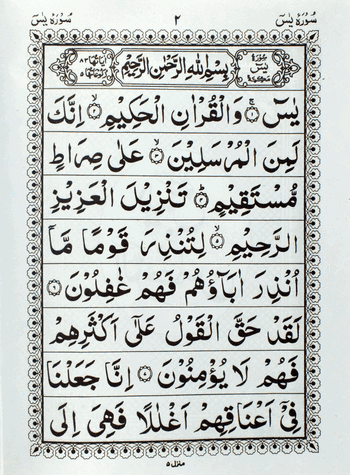 سُوْرَةُ يٰسٓ ٢ سُوْرَةُ يٰسٓ
سُوْرَةُ يٰسٓ مَكِّيَّةٌ بِسْمِ اللهِ الرَّحْمٰنِ الرَّحِيْمِ اٰيَاتُهَا ٨٣ رُكُوْعَاتُهَا ٥
يٰسٓ ۚ ١ وَالْقُرْاٰنِ الْحَكِيْمِ ۙ ٢ اِنَّكَ
لَمِنَ الْمُرْسَلِيْنَ ۙ ٣ عَلٰى صِرَاطٍ
مُّسْتَقِيْمٍ ؕ ٤ تَنْزِيْلَ الْعَزِيْزِ
الرَّحِيْمِ ۙ ٥ لِتُنْذِرَ قَوْمًا مَّاۤ
اُنْذِرَ اٰبَآؤُهُمْ فَهُمْ غٰفِلُوْنَ ٦
لَقَدْ حَقَّ الْقَوْلُ عَلٰۤى اَكْثَرِهِمْ
فَهُمْ لَا يُؤْمِنُوْنَ ٧ اِنَّا جَعَلْنَا
فِيْۤ اَعْنَاقِهِمْ اَغْلٰلًا فَهِيَ اِلَى
منزل ٥